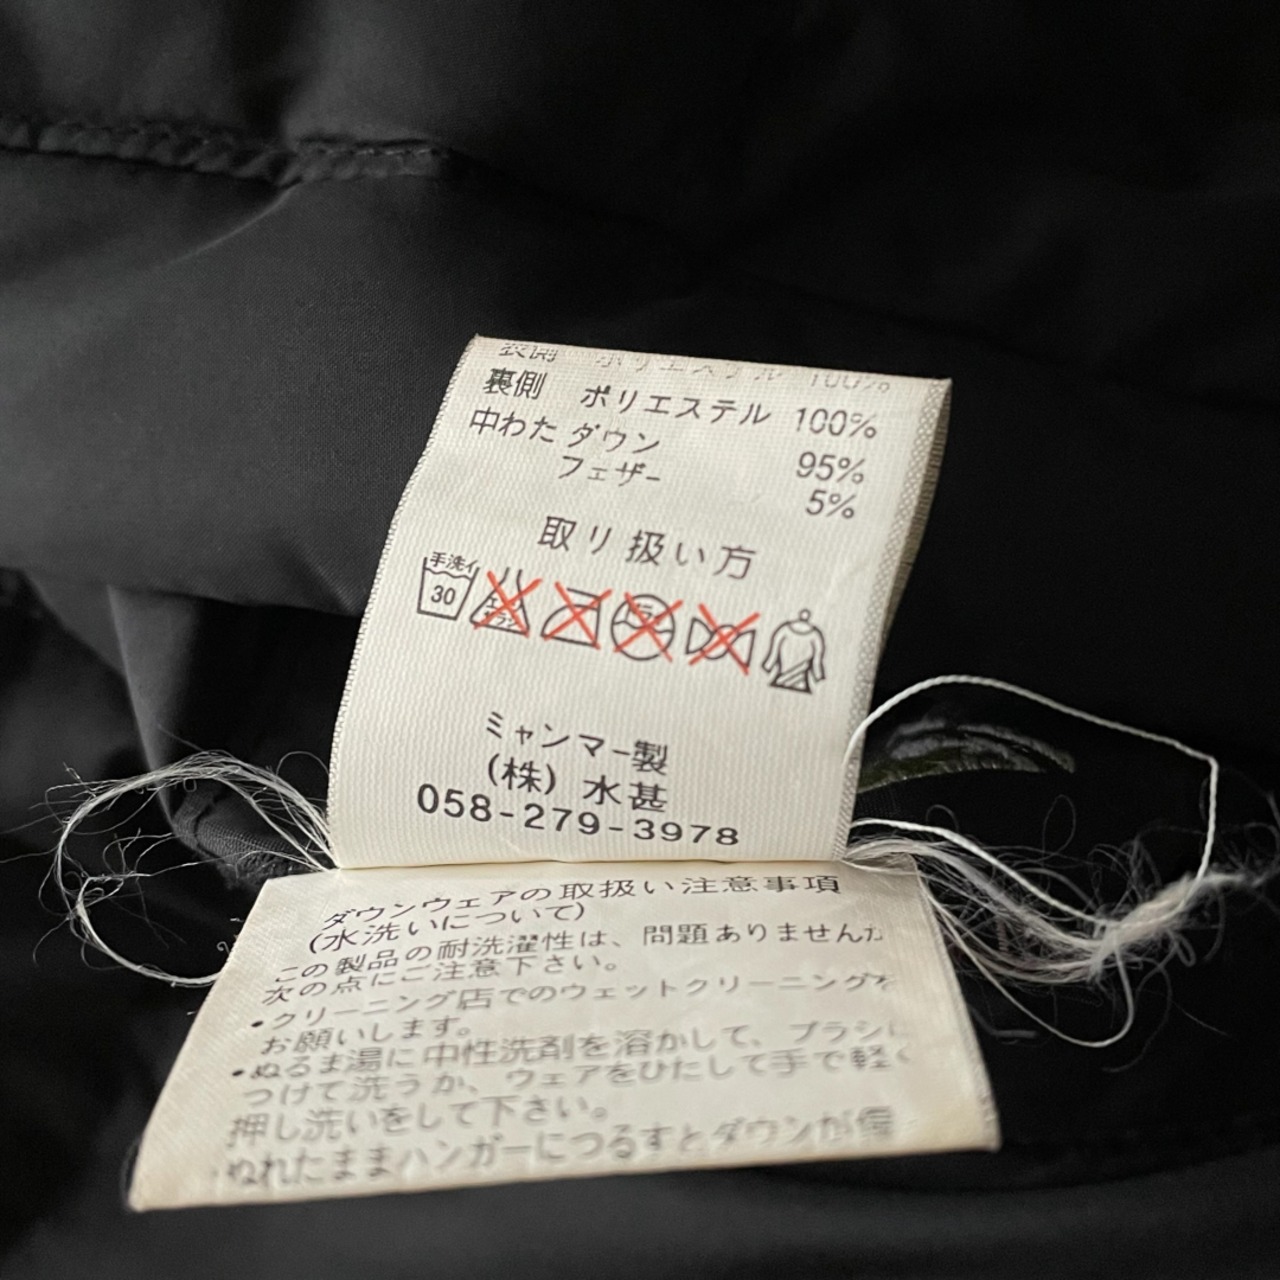 表側 ポリエステル 100%
裏側 ポリエステル 100%
中わた ダウン 95%
フェザー 5%
取り扱い方
手洗イ
30
ミャンマー製
(株) 水甚
058-279-3978
ダウンウェアの取扱い注意事項
(水洗いについて)
この製品の耐洗濯性は、問題ありませんが
次の点にご注意下さい。
・クリーニング店でのウェットクリーニングを
お願いします。
・ぬるま湯に中性洗剤を溶かして、ブラシに
つけて洗うか、ウェアをひたして手で軽く
押し洗いをして下さい。
・ぬれたままハンガーにつるすとダウンが偏